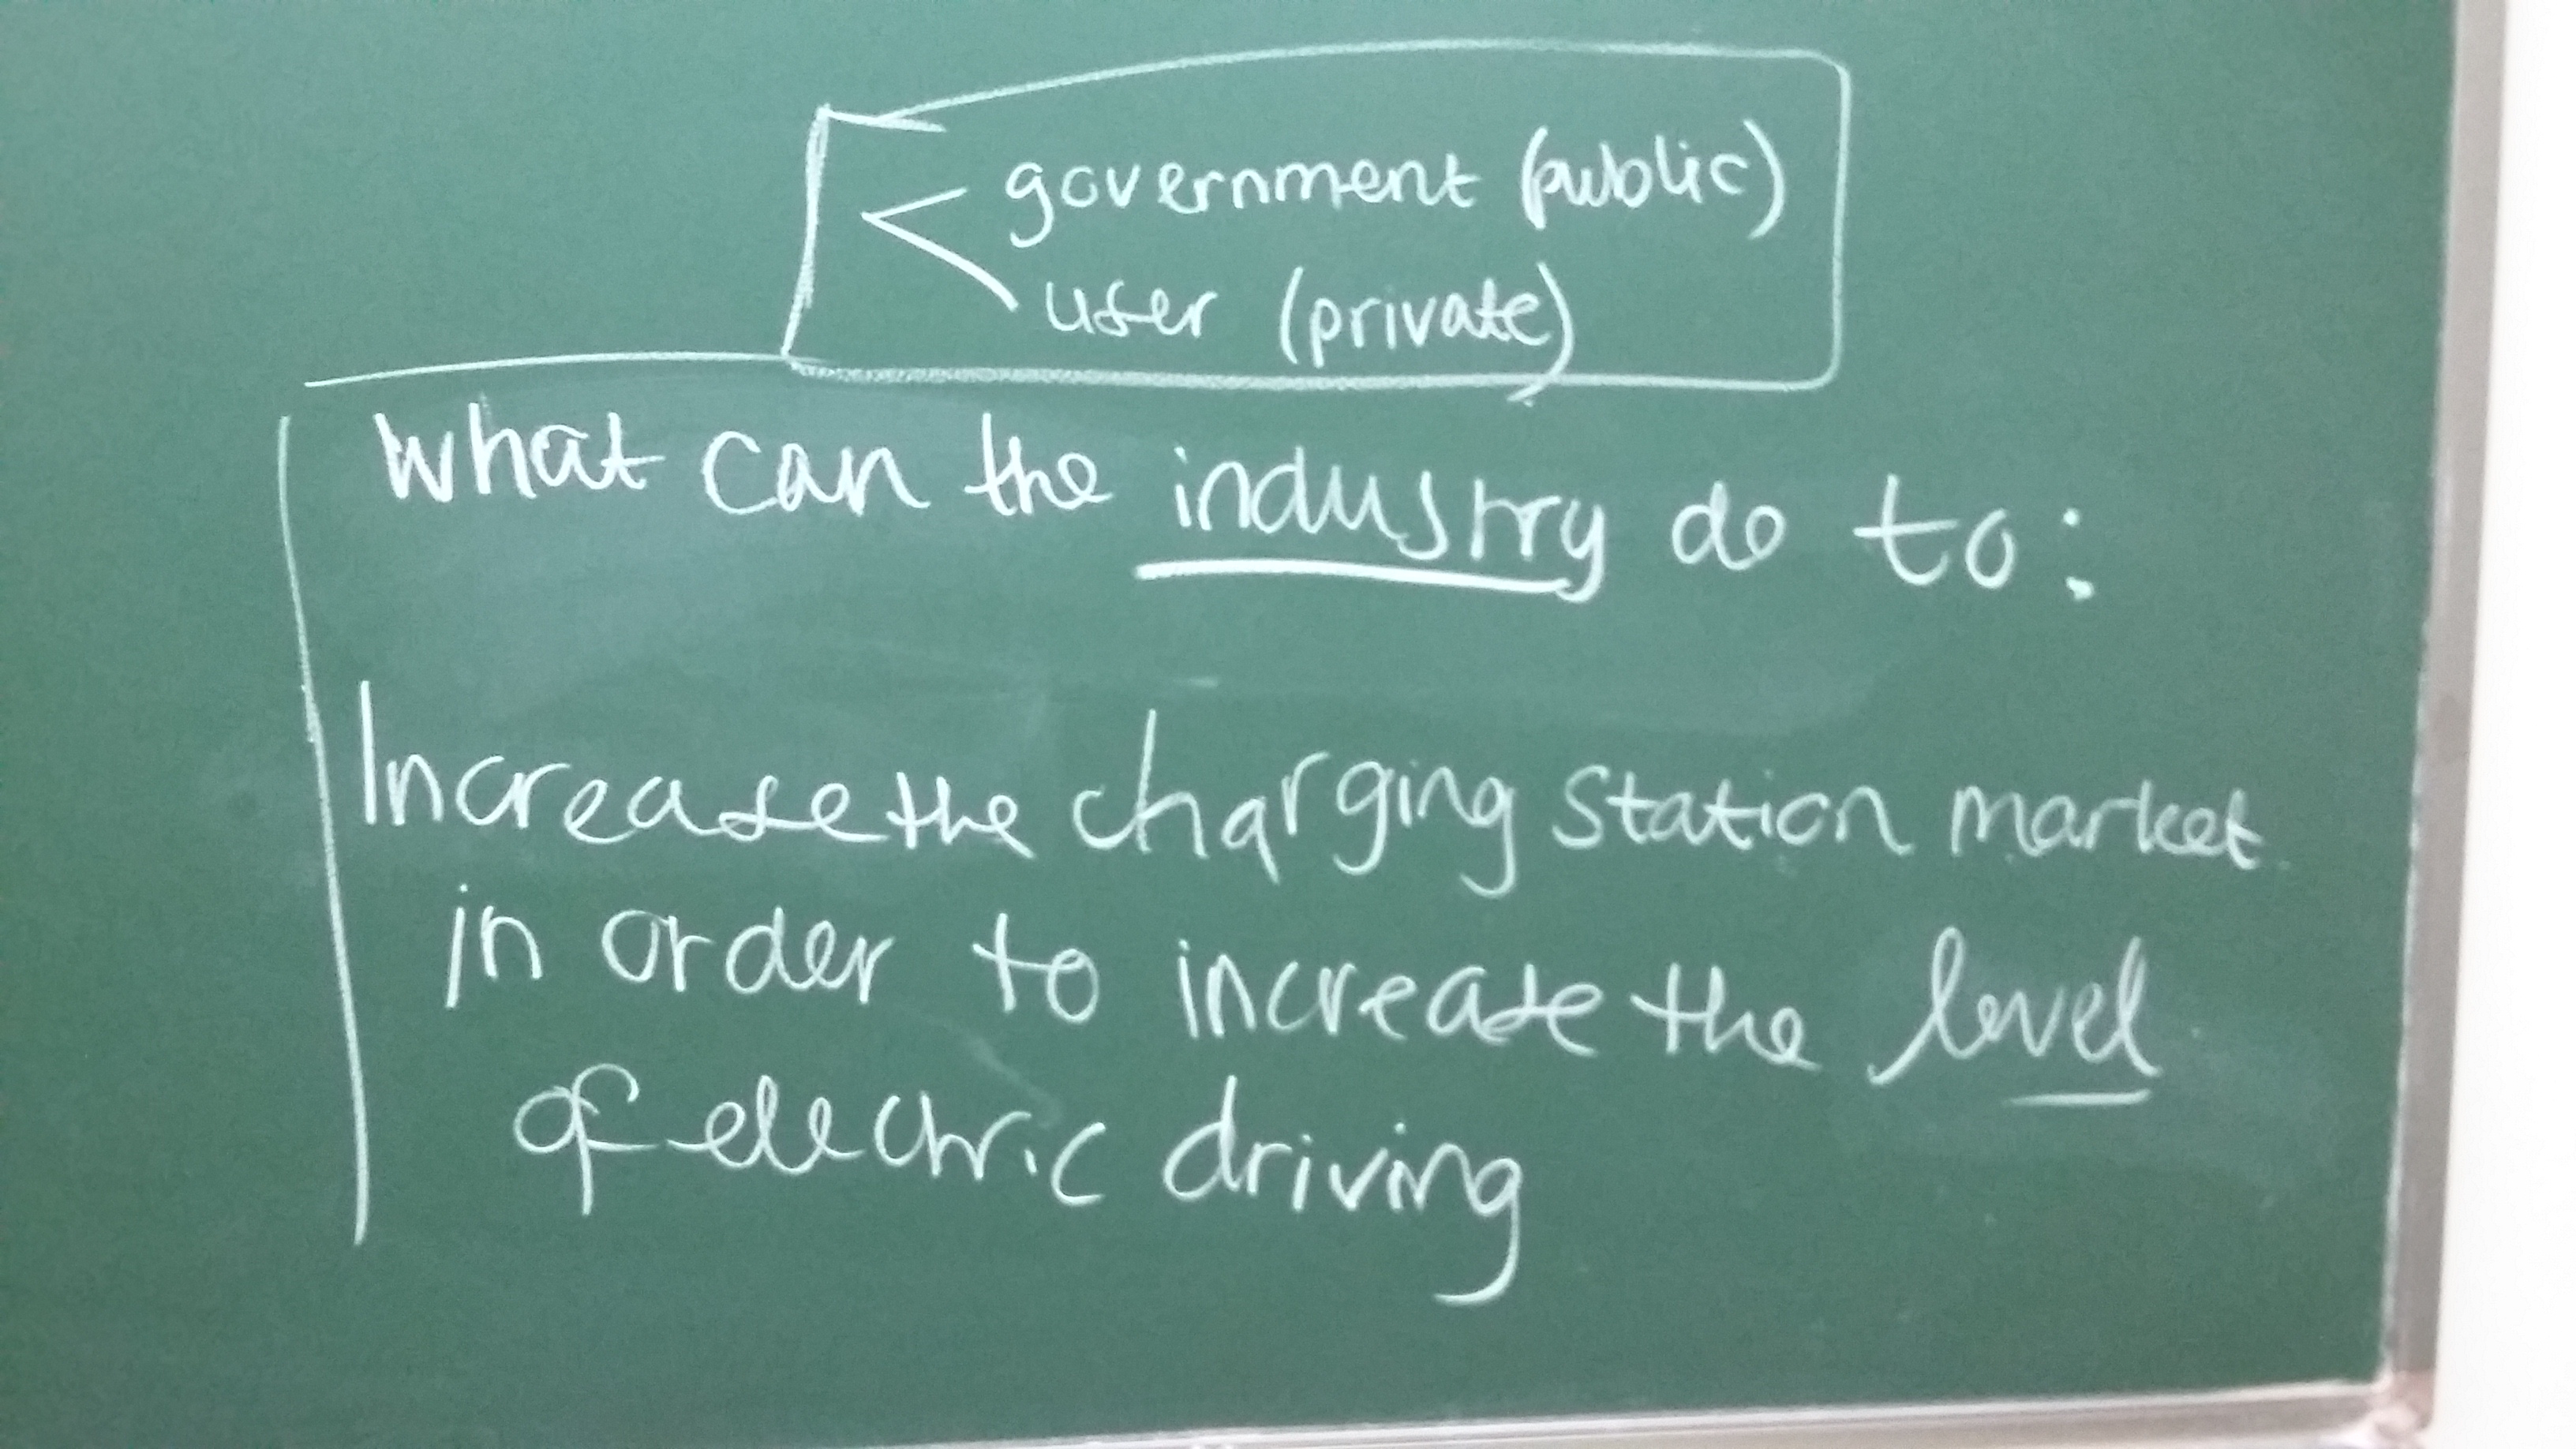 government (public)
user (private)
What can the industry do to:
Increase the charging station market
in order to increase the level
of electric driving